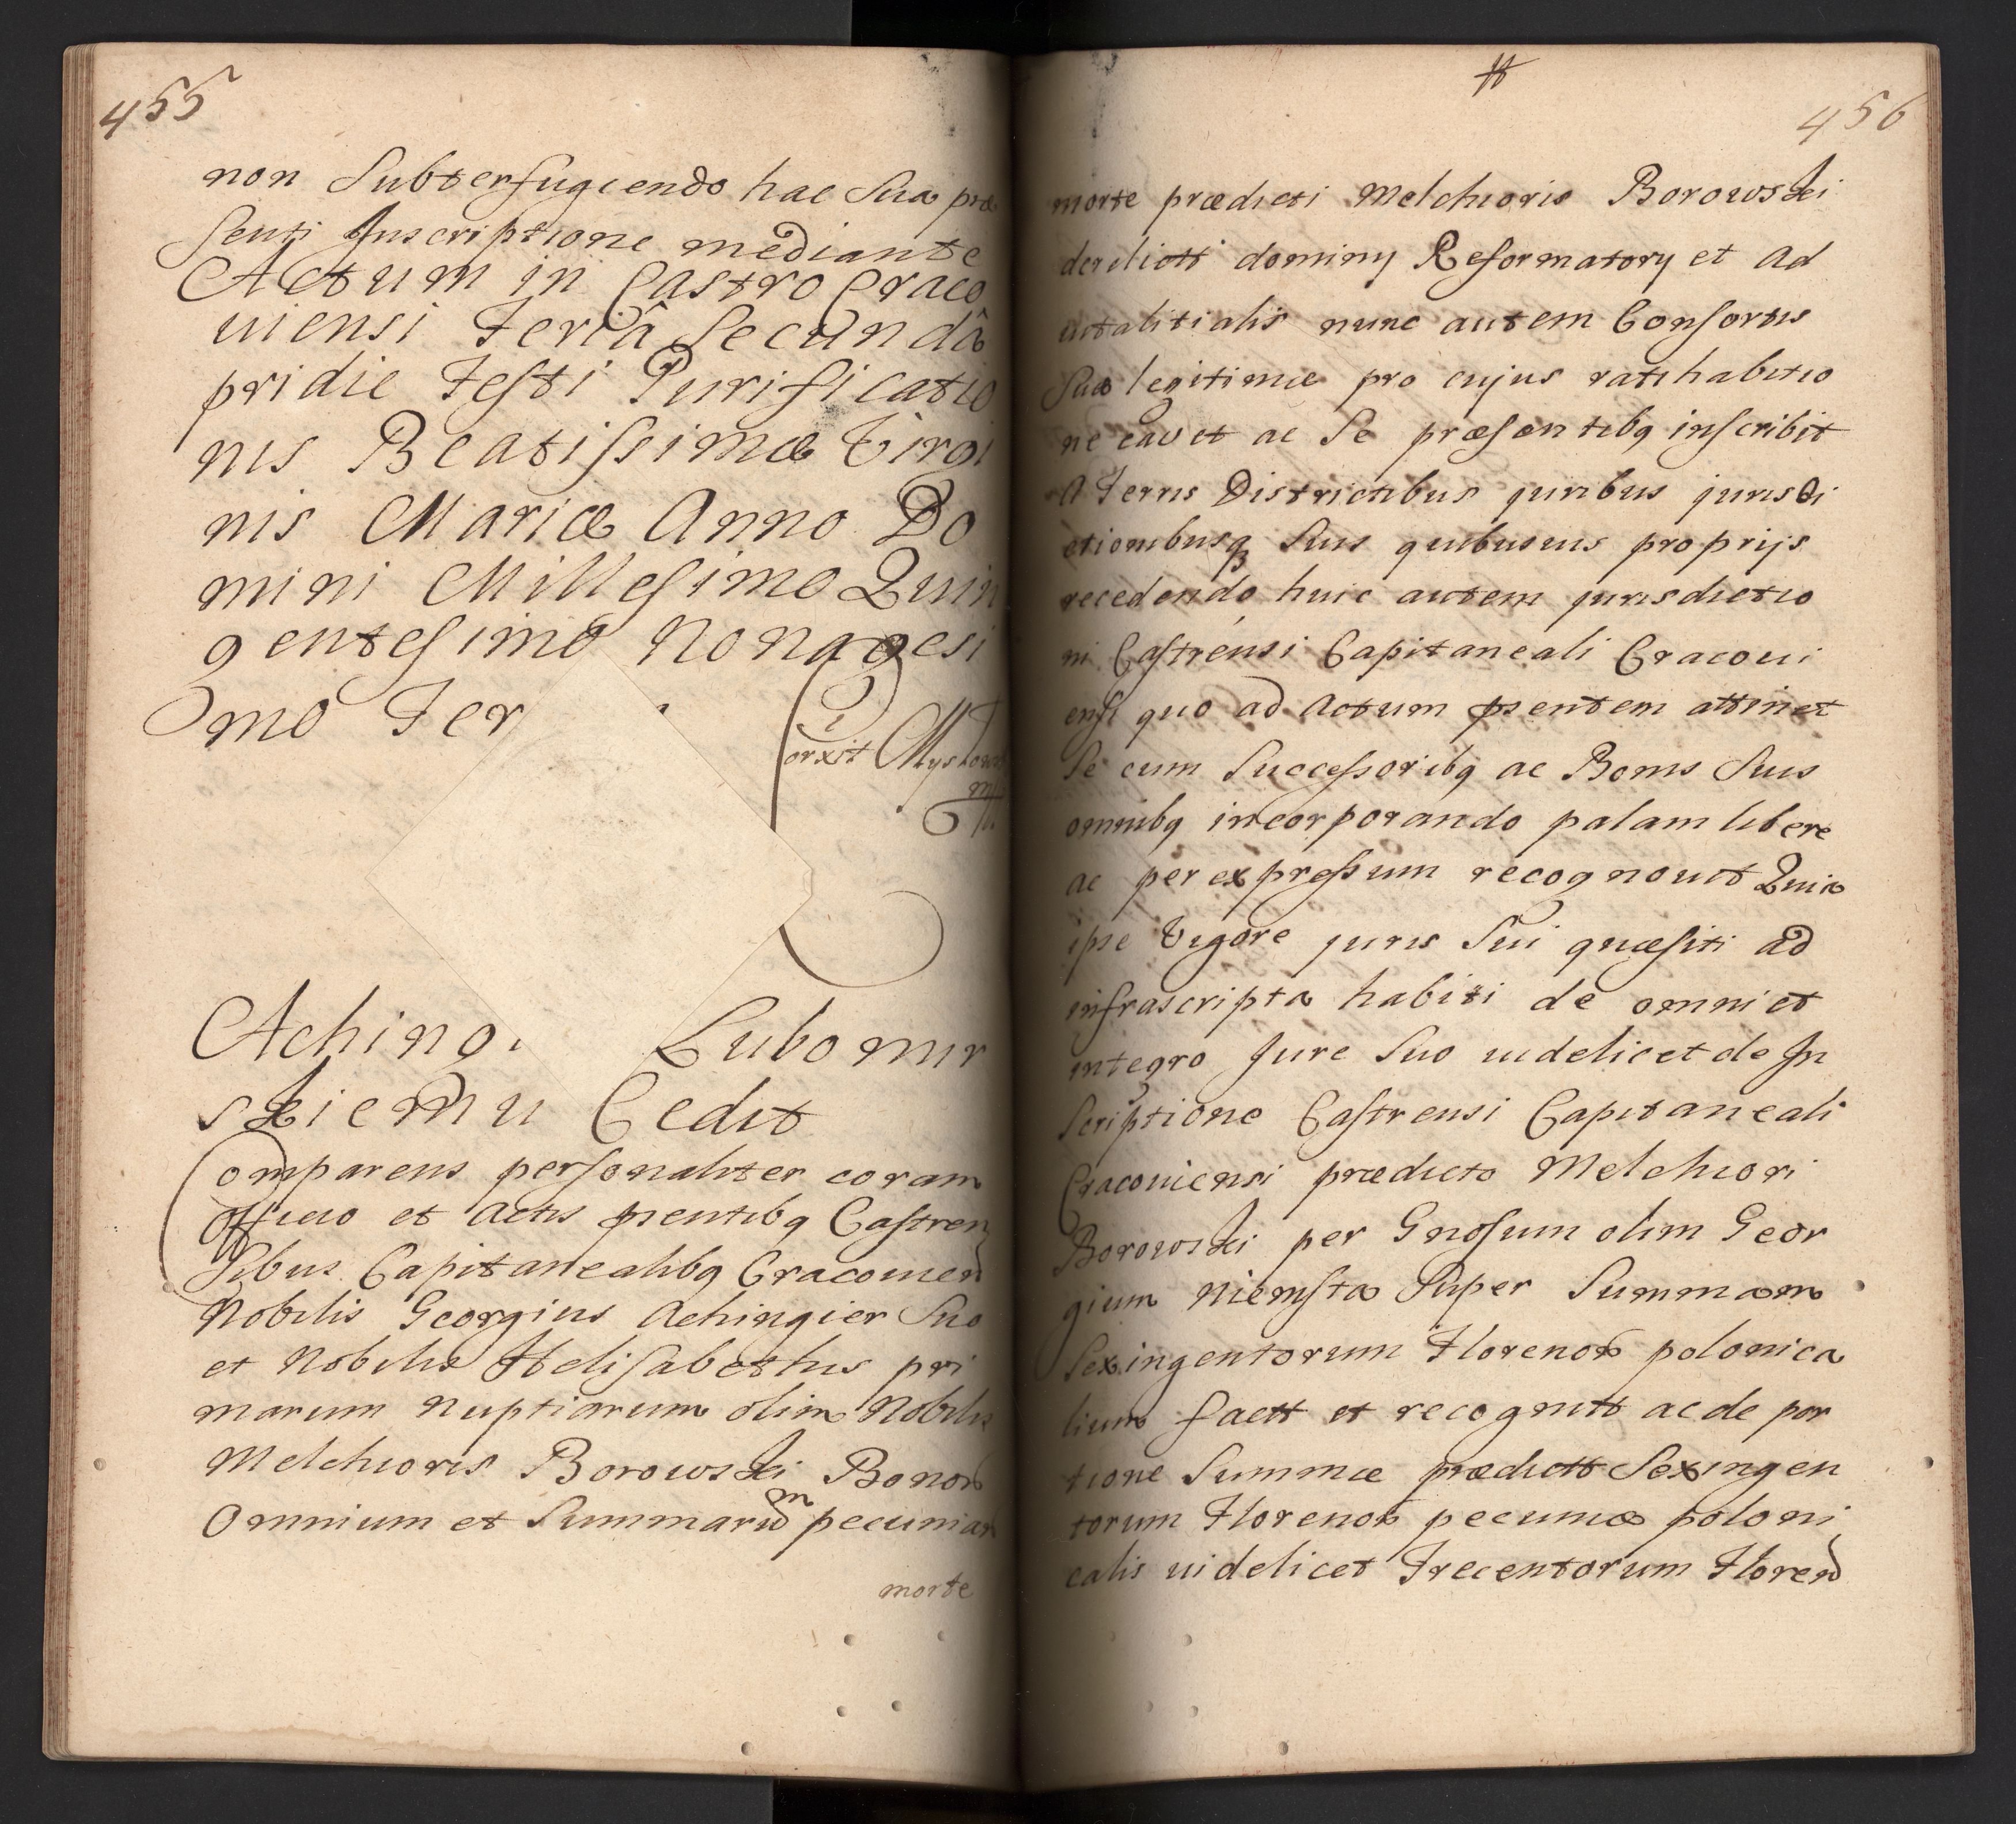 455
non Subterfugiendo hac Sua præ
senti Inscriptione mediante
Actum in Castro Craco
uiensi Feriâ Secundâ
pridie Festi Purificatio
nis Beatissimæ Virgi
nis Mariæ Anno Do
mini Millesimo Quin
gentesimo Nonagesi
mo Ter
orxit
Aching Lubomir
skiemu Cedit
Comparens personaliter coram
Officio et Actis pntibq Castren
sibus Capitanealibq Cracouien
Nobilis Georgius Achingier Suo
et Nobilis Helisabethis pri
marum nuptiarum olim Nobilis
Melchioris Borowski Bonor
Omnium et Summarum pecuniar
morte
456
morte prædicti Melchioris Borowski
derelictt dominy Reformatory et ad
uitalitialis nunc autem Consortis
Suæ legitimæ pro cujus ratihabitio
ne cauet ac Se præsentibq inscribit
A Terris Districtibus juribus jurisdi
ctionibusq Suis quibusuis proprijs
recedendo huic autem jurisdictio
ni Castrensi Capitaneali Cracoui
ensi quo ad Actum pntem attinet
Se cum Successoribq ac Bonis Suis
omnibq incorporando palam libere
ac per expressum recognouit Quia
ipse Vigore juris Sui quæsiti ad
infrascripta habiti de omni et
integro Jure Suo uidelicet de In
scriptione Castrensi Capitaneali
Cracouiensi prædicto Melchiori
Borowski per Gnosum olim Geor
gium Niemsta Super Summam
Sexingentorum Florenor polonica
lium factt et recognitt ac de por
tione Summæ prædictt Sexingen
torum Florenor pecuniæ poloni
calis uidelicet Trecentorum Floren